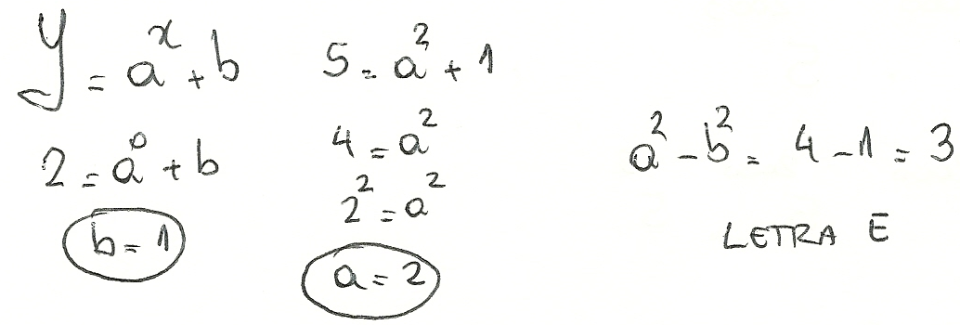 y = aˣ + b
2 = a⁰ + b
b = 1
5 = a² + 1
4 = a²
2² = a²
a = 2
a² - b² = 4 - 1 = 3
LETRA E